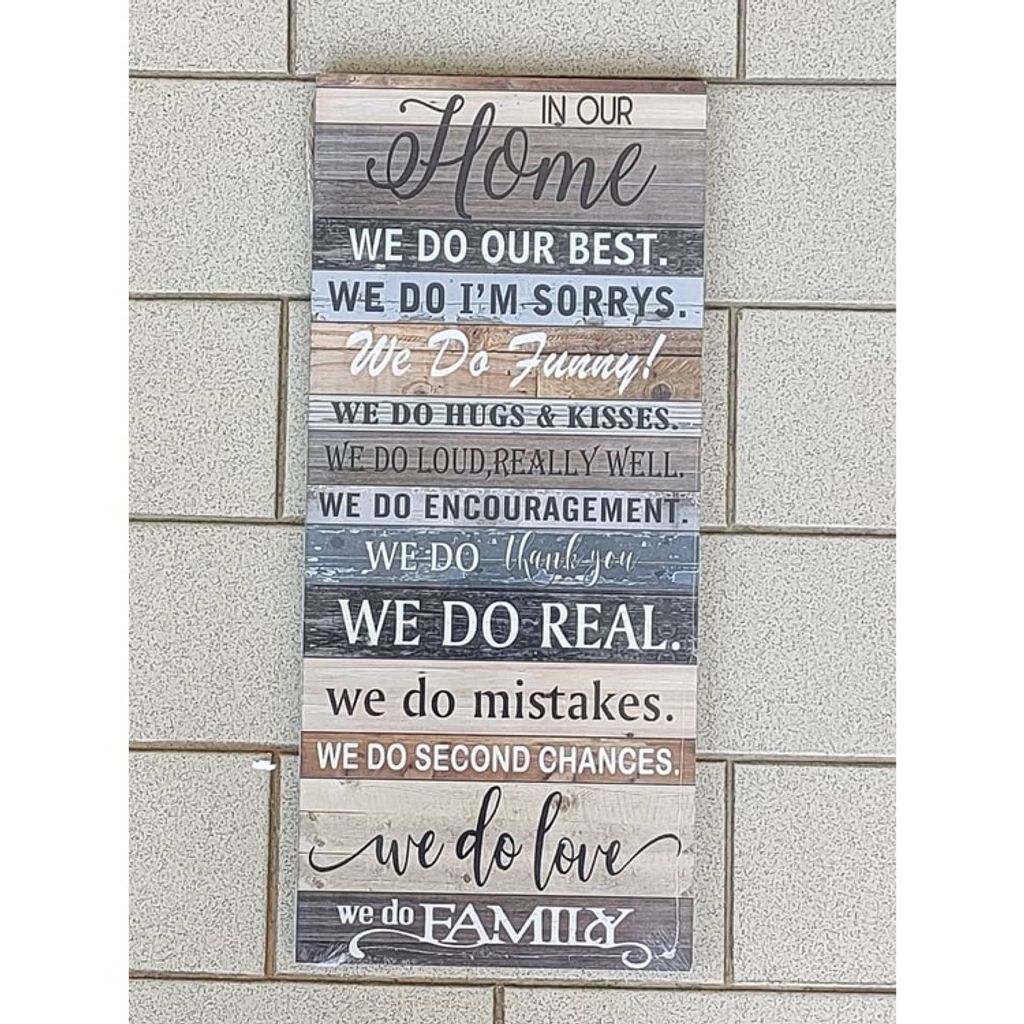 IN OUR
Home
WE DO OUR BEST.
WE DO I'M SORRYS.
We Do Funny!
WE DO HUGS & KISSES.
WE DO LOUD,REALLY WELL.
WE DO ENCOURAGEMENT.
WE DO thank you
WE DO REAL.
we do mistakes.
WE DO SECOND CHANCES.
we do love
we do FAMILY